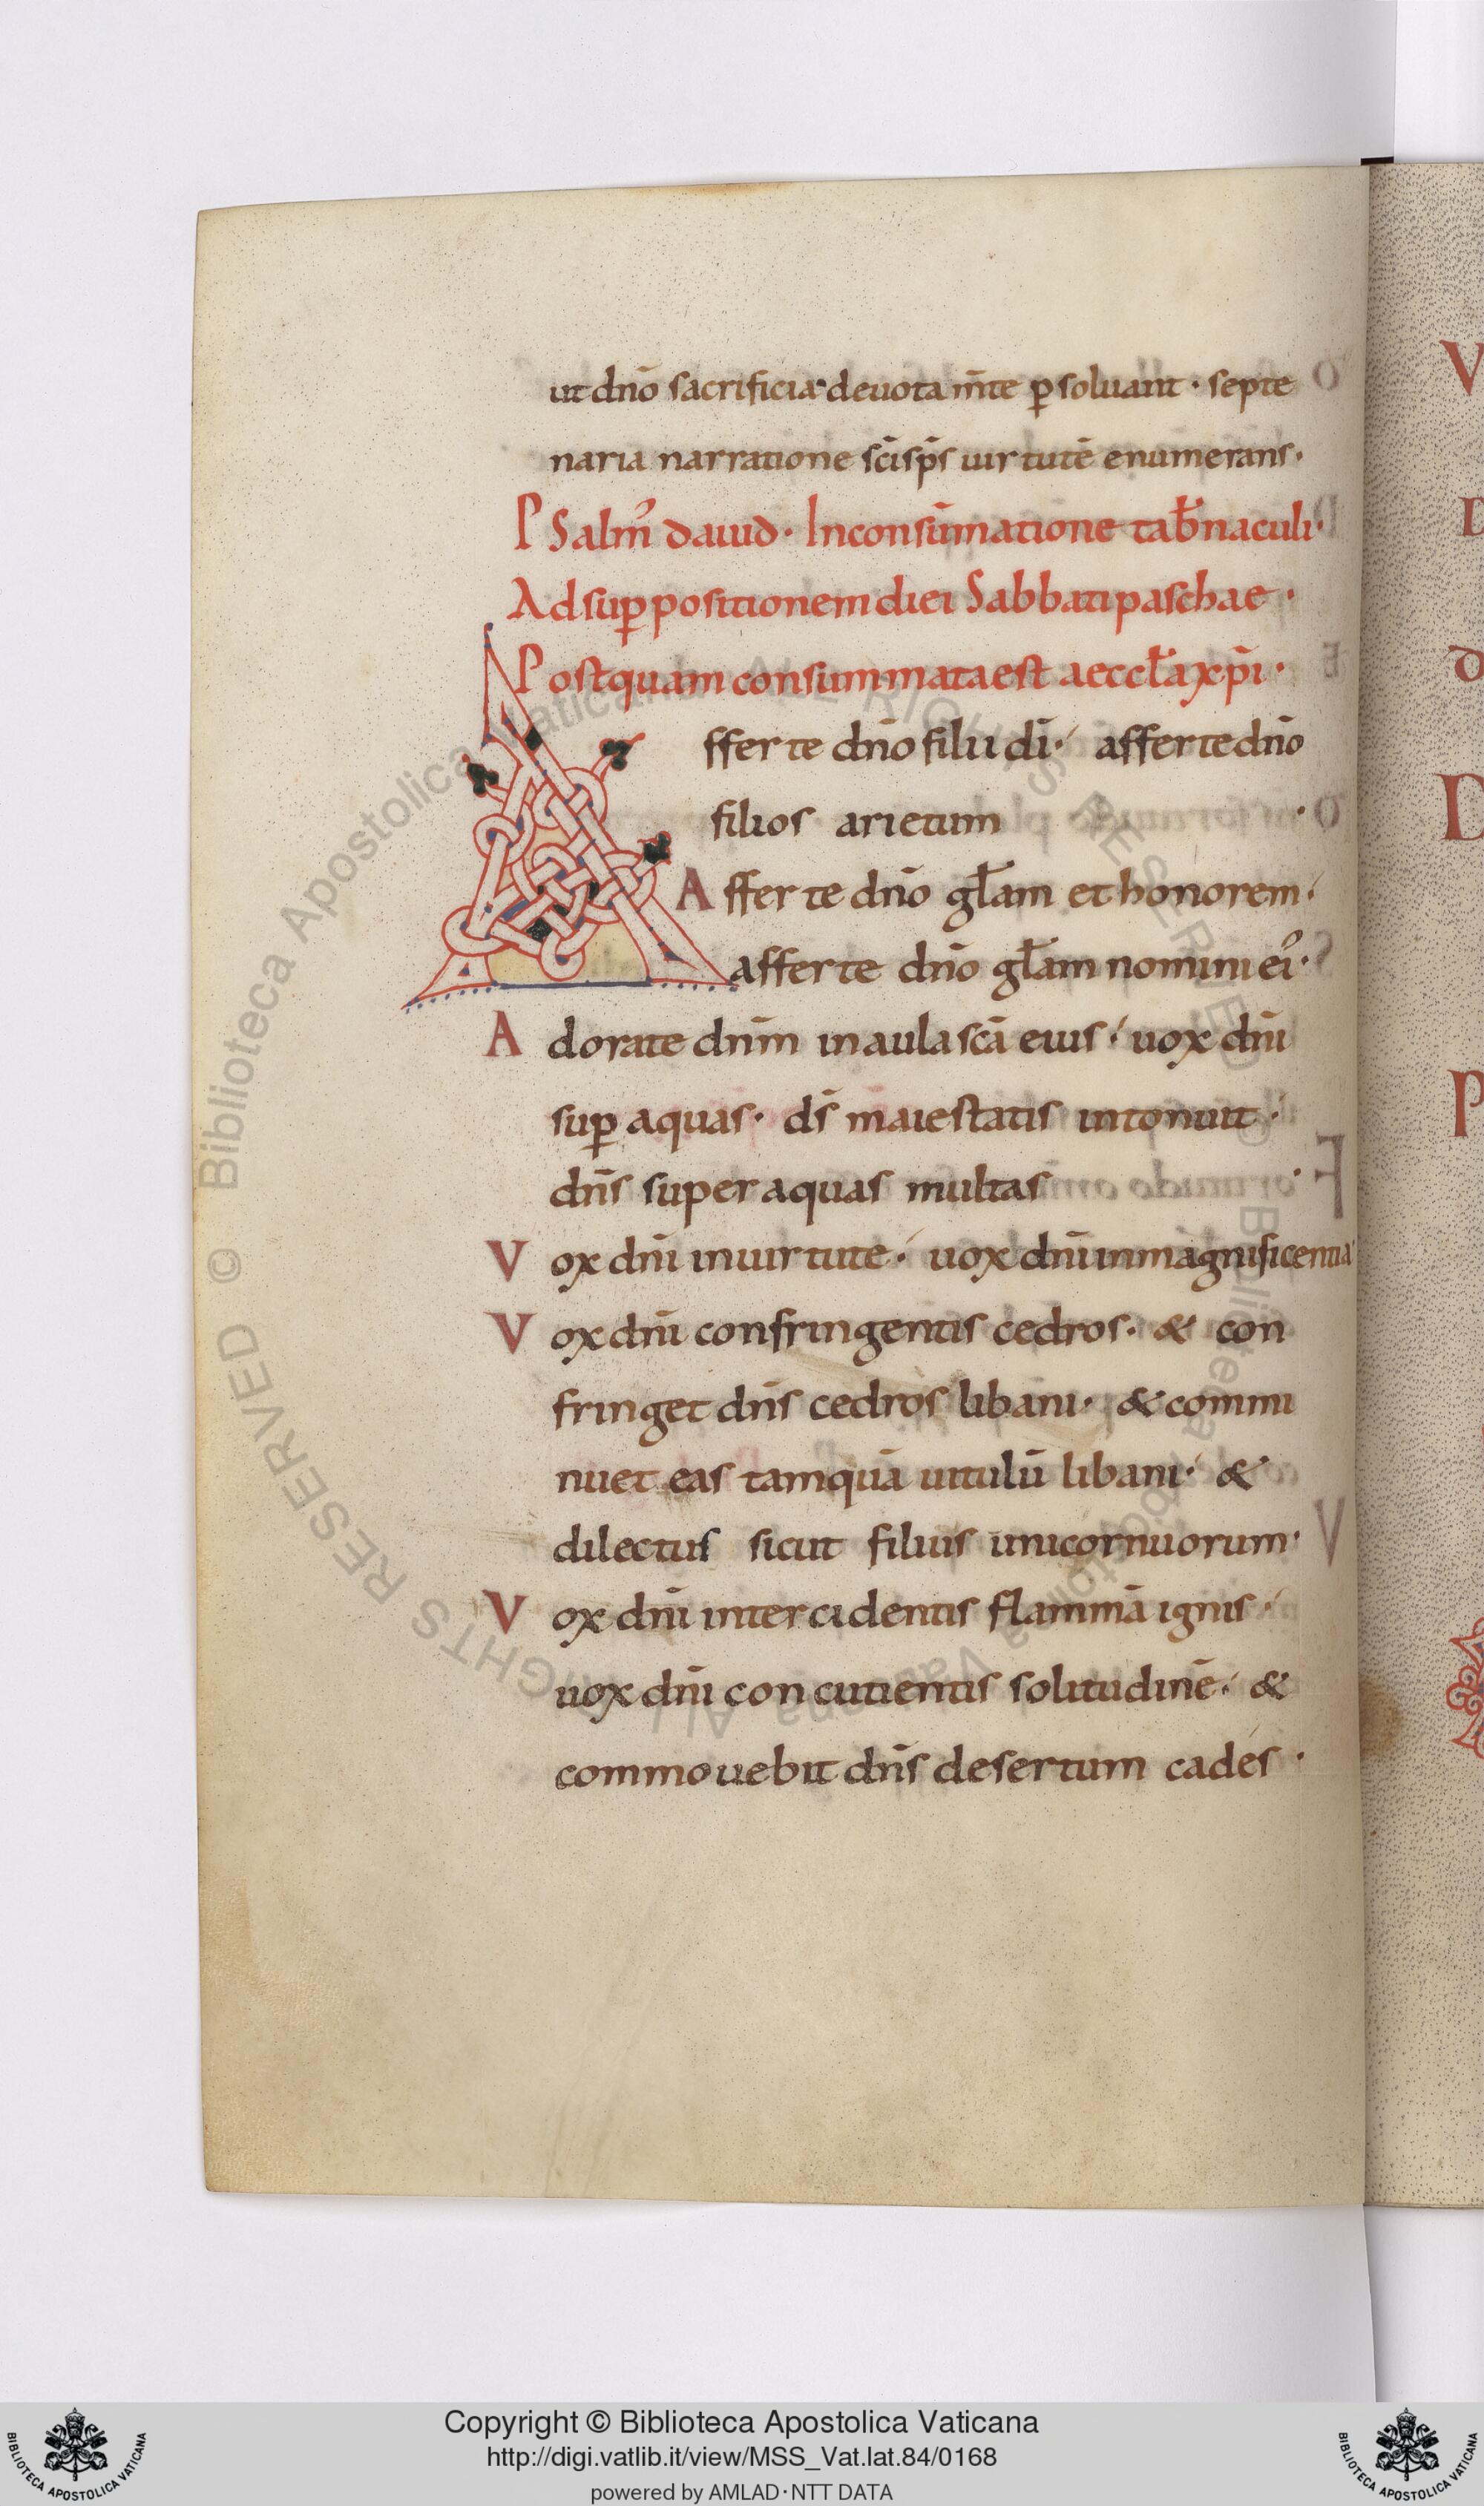 ut dnō sacrificia deuota m̄te ꝑsoluant · septe
naria narratione sc̄i sp̄s uirtutē enumerans·
PSalm᷒ dauid· In consūmatione tab̄naculi·
Ad suꝑpositionem diei Sabbati paschae·
Postquam consummata est aeccl̄a xp̄i·
Afferte dn̄o filii dī· afferte dn̄o
filios arietum·
Afferte dn̄o gl̄am et honorem·
afferte dn̄o gl̄am nomini ei᷒·
Adorate dn̄m in aula sc̄a eius· uox dn̄i
suꝑ aquas· ds̄ maiestatis intonuit·
dn̄s super aquas multas·
Vox dn̄i in uirtute· uox dn̄i in magnificentia
Vox dn̄i confringentis cedros· & con
fringet dn̄s cedros libani· & commi
nuet eas tamquā uitulū libani· &
dilectus sicut filius unicornuorum·
Vox dn̄i intercidentis flammā ignis·
uox dn̄i concutientis solitudinē· &
commouebit dn̄s desertum cades·
Copyright © Biblioteca Apostolica Vaticana
http://digi.vatlib.it/view/MSS_Vat.lat.84/0168
powered by AMLAD·NTT DATA
BIBLIOTECA APOSTOLICA VATICANA
BIBLIOTECA APOSTOLICA VATICANA